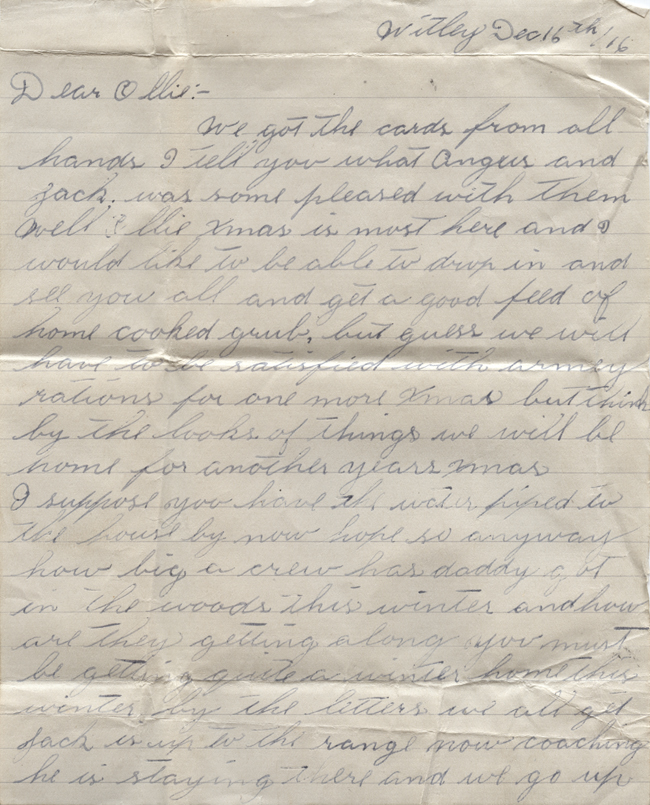 Witley Dec 16th/16
Dear Ollie:-
We got the cards from all
hands I tell you what Angus and
Jack. was some pleased with them
Well Ollie Xmas is most here and I
would like to be able to drop in and
see you all and get a good feed of
home cooked grub, but guess we will
have to be satisfied with armey
rations for one more Xmas but think
by the looks of things we will be
home for another years xmas
I suppose you have the water piped to
the house by now hope so anyways
how big a crew has daddy got
in the woods this winter and how
are they getting along you must
be getting quite a winter home this
winter by the letters we all get
Jack is up to the range now coaching
he is staying there and we go up